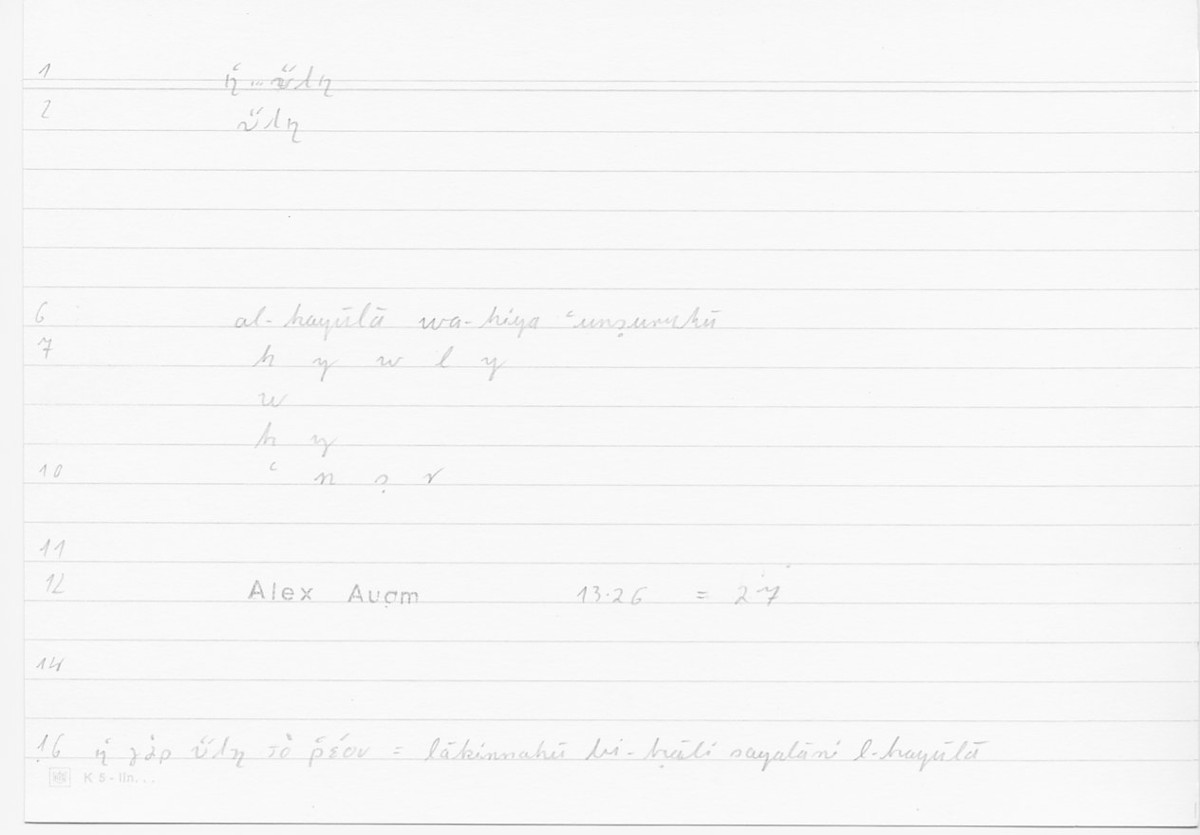 1 ἡ ... ὕλη
2 ὕλη
6 al-hayūlā wa-hiya ʿunṣuruhū
7 h y w l y
w
h y
10 ʿ n ṣ r
11
12 Alex Aucm 13.26 = 2.7
14
16 ἡ γὰρ ὕλη τὸ ῥέον = lākinnahū bi-ḥāli sayalāni l-hayūlā
K 5 - lin...